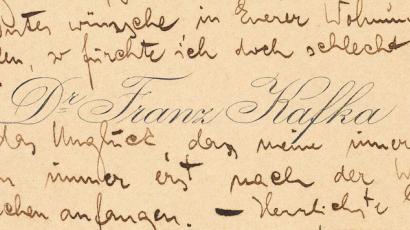 gutes wünsche in Euerer Wohnun
en, so fürchte ich doch schlecht
Dr Franz Kafka
das Unglück das, meine inner
n immer erst nach der W
chen anfangen. — Herzlichste